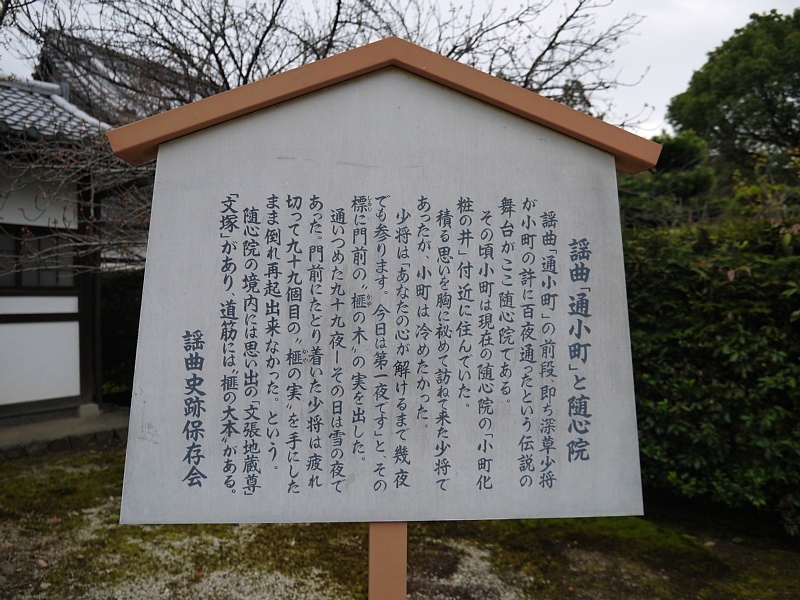 謡曲「通小町」と随心院
謡曲「通小町」の前段、即ち深草少将
が小町の許に百夜通ったという伝説の
舞台がここ随心院である。
その頃小町は現在の随心院の「小町化
粧の井」付近に住んでいた。
積る思いを胸に秘めて訪ねて来た少将で
あったが、小町は冷めたかった。
少将は「あなたの心が解けるまで幾夜
でも参ります。今日は第一夜です」と、その
標に門前の〝榧の木〟の実を出した。
通いつめた九十九夜ーその日は雪の夜で
あった。門前にたどり着いた少将は疲れ
切って九十九個目の〝榧の実〟を手にした
まま倒れ再起出来なかった。という。
随心院の境内には思い出の「文張地蔵尊」
「文塚」があり、道筋には〝榧の大本〟がある。
謡曲史跡保存会